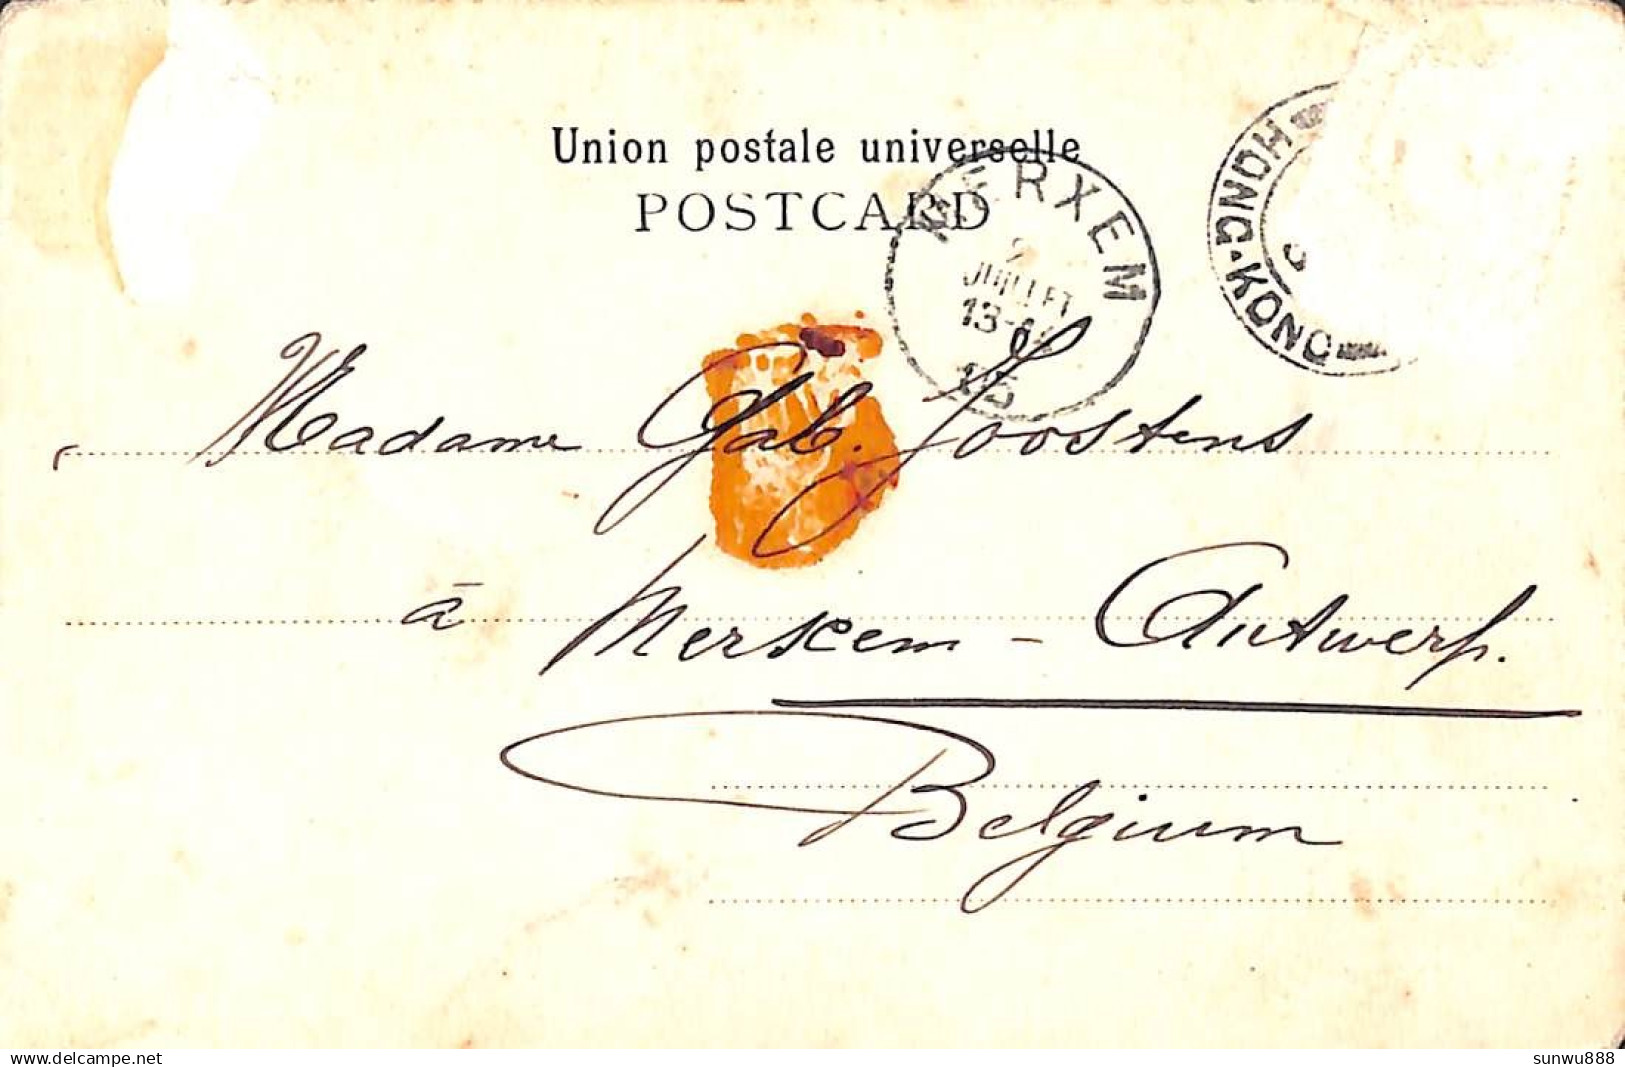 Union postale universelle
POSTCARD
MERXEM
2
JUILLET
13-14
05
HONG-KONG
Madame Gab. Joostens
à Merxem - Antwerp.
Belgium
www.delcampe.net
sunwu888